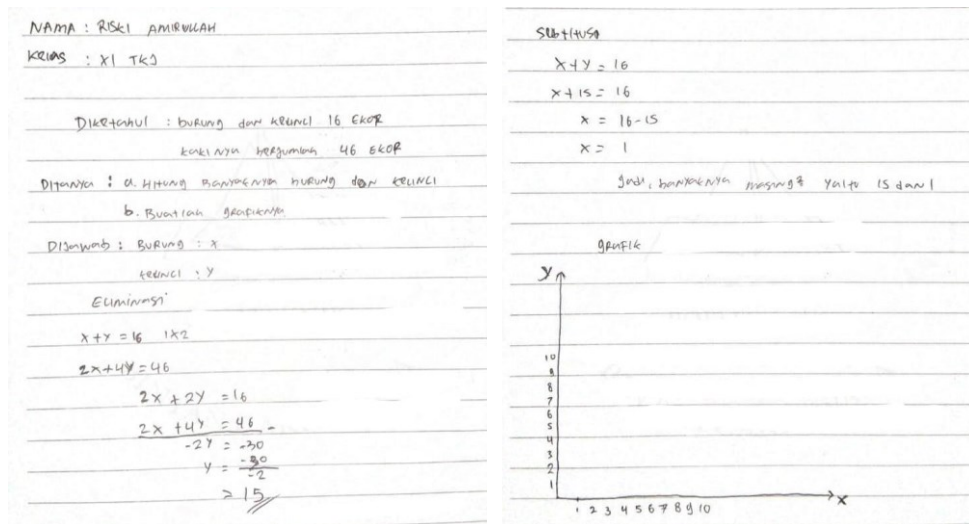 NAMA : RISKI AMIRULLAH
Kelas : XI TKJ
Diketahui : burung dan kelinci 16 EKOR
kakinya berjumlah 46 EKOR
Ditanya : a. Hitung Banyaknya burung dan kelinci
b. Buatlah grafiknya
Dijawab : Burung : x
kelinci : y
Eliminasi
x + y = 16 1x2
2x + 4y = 46
2x + 2y = 16
2x + 4y = 46 -
-2y = -30
y = -30
-2
= 15
Subtitusi
x + y = 16
x + 15 = 16
x = 16 - 15
x = 1
Jadi, banyaknya masing² yaitu 15 dan 1
grafik
y
10
9
8
7
6
5
4
3
2
1
1 2 3 4 5 6 7 8 9 10
x